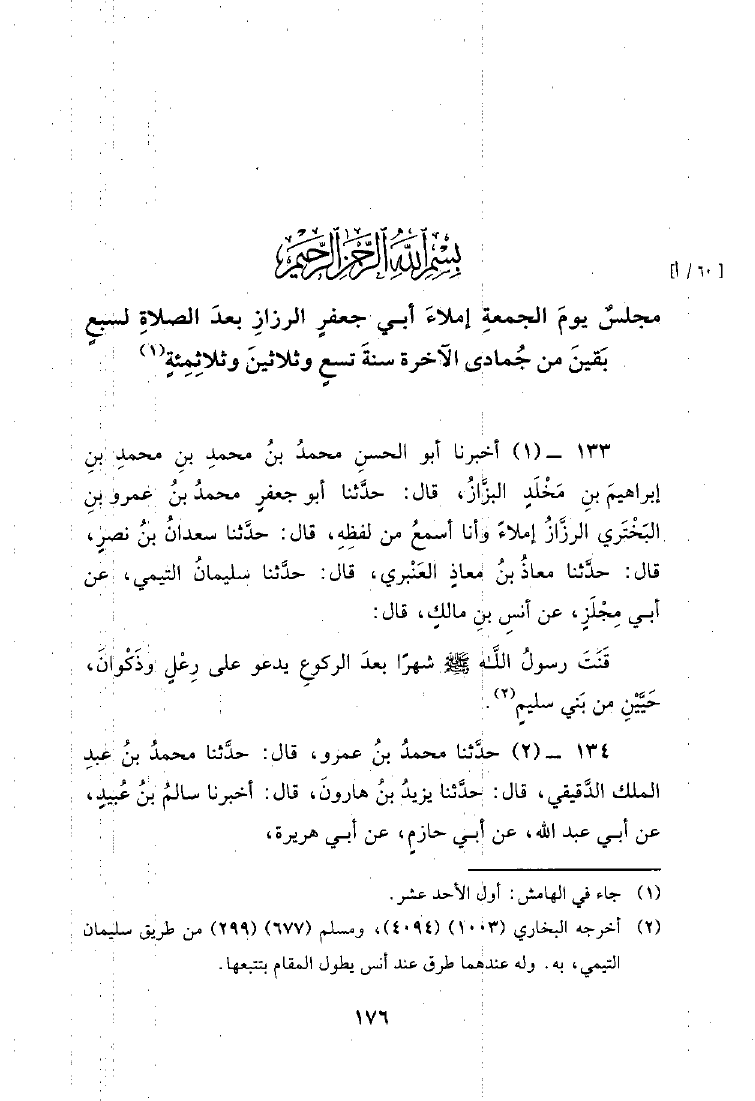 بِسْمِ اللَّهِ الرَّحْمَنِ الرَّحِيمِ
[٦٠ / أ]
مجلسٌ يومَ الجمعةِ إملاءَ أبي جعفرٍ الرزازِ بعدَ الصلاةِ لسبعٍ
بَقينَ من جُمادى الآخرة سنةَ تسعٍ وثلاثينَ وثلاثِمِئةٍ(١)
١٣٣ ــ (١) أخبرنا أبو الحسنِ محمدُ بنُ محمدِ بنِ محمدِ بنِ
إبراهيمَ بنِ مَخْلَدٍ البزَّازُ، قال: حدَّثنا أبو جعفرٍ محمدُ بنُ عَمرو بنِ
البَخْتَري الرزَّازُ إملاءً وأنا أسمعُ من لفظِهِ، قال: حدَّثنا سعدانُ بنُ نصرٍ،
قال: حدَّثنا معاذُ بنُ معاذٍ العَنْبري، قال: حدَّثنا سليمانُ التيمي، عن
أبي مِجْلَزٍ، عن أنسِ بنِ مالكٍ، قال:
قَنَتَ رسولُ اللَّه ﷺ شهرًا بعدَ الركوعِ يدعو على رِعْلٍ وذَكْوانَ،
حَيَّيْنِ من بَني سليمٍ(٢).
١٣٤ ــ (٢) حدَّثنا محمدُ بنُ عمرو، قال: حدَّثنا محمدُ بنُ عبدِ
الملك الدَّقيقي، قال: حدَّثنا يزيدُ بنُ هارونَ، قال: أخبرنا سالمُ بنُ عُبيدٍ،
عن أبي عبد الله، عن أبي حازمٍ، عن أبي هريرة،
(١) جاء في الهامش: أول الأحد عشر.
(٢) أخرجه البخاري (١٠٠٣) (٤٠٩٤)، ومسلم (٦٧٧) (٢٩٩) من طريق سليمان
التيمي، به. وله عندهما طرق عند أنس يطول المقام بتتبعها.
١٧٦